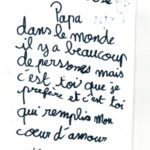 Papa
dans le monde
il y a beaucoup
de persones mais
c'est toi que je
préfère et c'est toi
qui remplis mon
coeur d'amour